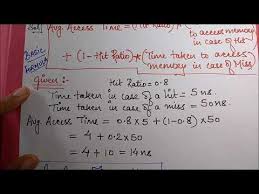 Sol
Avg. Access Time = (Hit Ratio) * (Time taken
to access
memory
in case of
Hit
BASIC
FORMULA
+ (1 - Hit Ratio) * (Time taken to access
memory in case of Miss)
Given :-
Hit Ratio = 0.8
Time taken in case of a hit = 5 ns.
Time taken in case of a miss = 50 ns.
Avg. Access Time = 0.8 x 5 + (1-0.8) x 50
= 4 + 0.2 x 50
= 4 + 10 = 14 ns